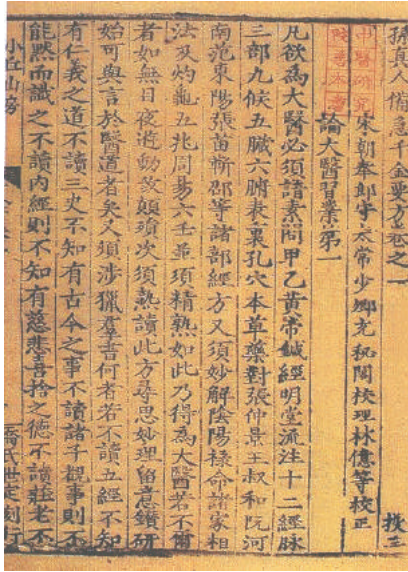 孫真人備急千金要方卷之一
中醫研究
宋朝奉郎守太常少卿充秘閣校理林億等校正
論大醫習業第一
凡欲為大醫必須諳素問甲乙黃帝鍼經明堂流注十二經脉
三部九候五臟六腑表裏孔穴本草藥對張仲景王叔和阮河
南范東陽張苗靳邵等諸部經方又須妙解陰陽祿命諸家相
法及灼龜五兆周易六壬並須精熟如此乃得為大醫若不爾
者如無目夜遊動致顛殞次須熟讀此方尋思妙理留意鑽研
始可與言於醫道者矣又須涉獵羣書何者若不讀五經不知
有仁義之道不讀三史不知有古今之事不讀諸子覩事則不
能默而識之不讀內經則不知有慈悲喜捨之德不讀莊老不
小丘山房
喬氏世定刻行